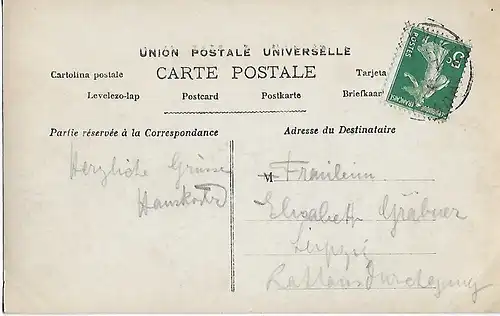 UNION POSTALE UNIVERSELLE
Cartolina postale CARTE POSTALE Tarjeta
Levelezo-lap Postcard Postkarte Briefkaar
Partie réservée à la Correspondance
Adresse du Destinataire
5c
POSTES
FRANÇAISE
Herzliche Grüsse
M Fräulein
Elisabeth Gräbner
Leipzig